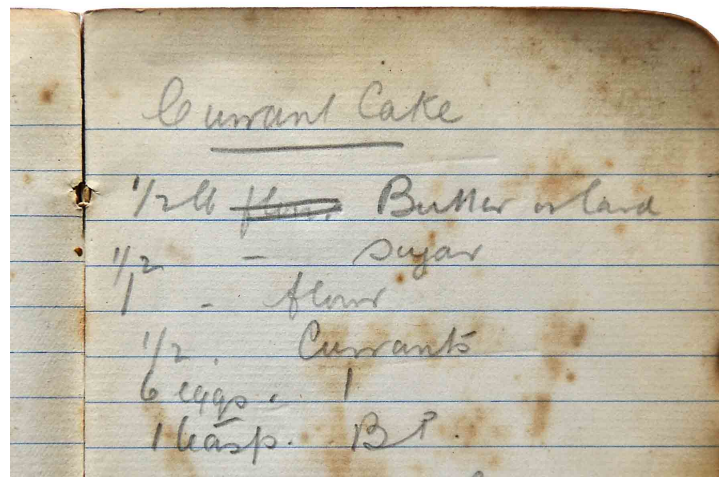 Currant Cake
1/2 lb flour Butter or lard
1/2 - sugar
1 - flour
1/2 . Currants
6 eggs.
1 teasp. B P.